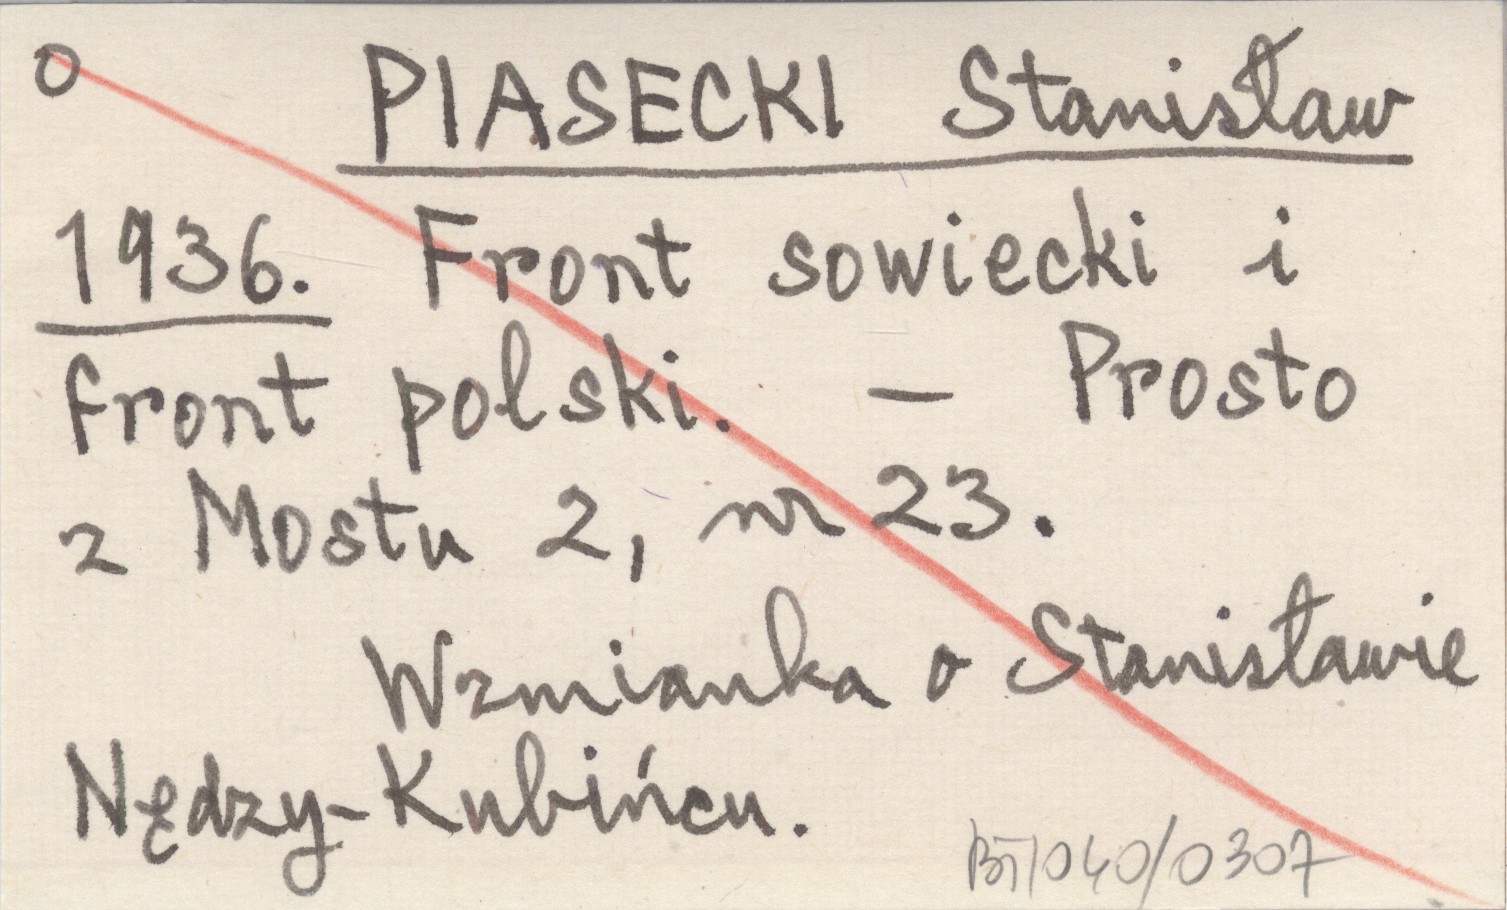 o PIASECKI Stanisław
1936. Front sowiecki i
front polski. — Prosto
z Mostu 2, nr 23.
Wzmianka o Stanisławie
Nędzy-Kubińcu.
BT/040/0307